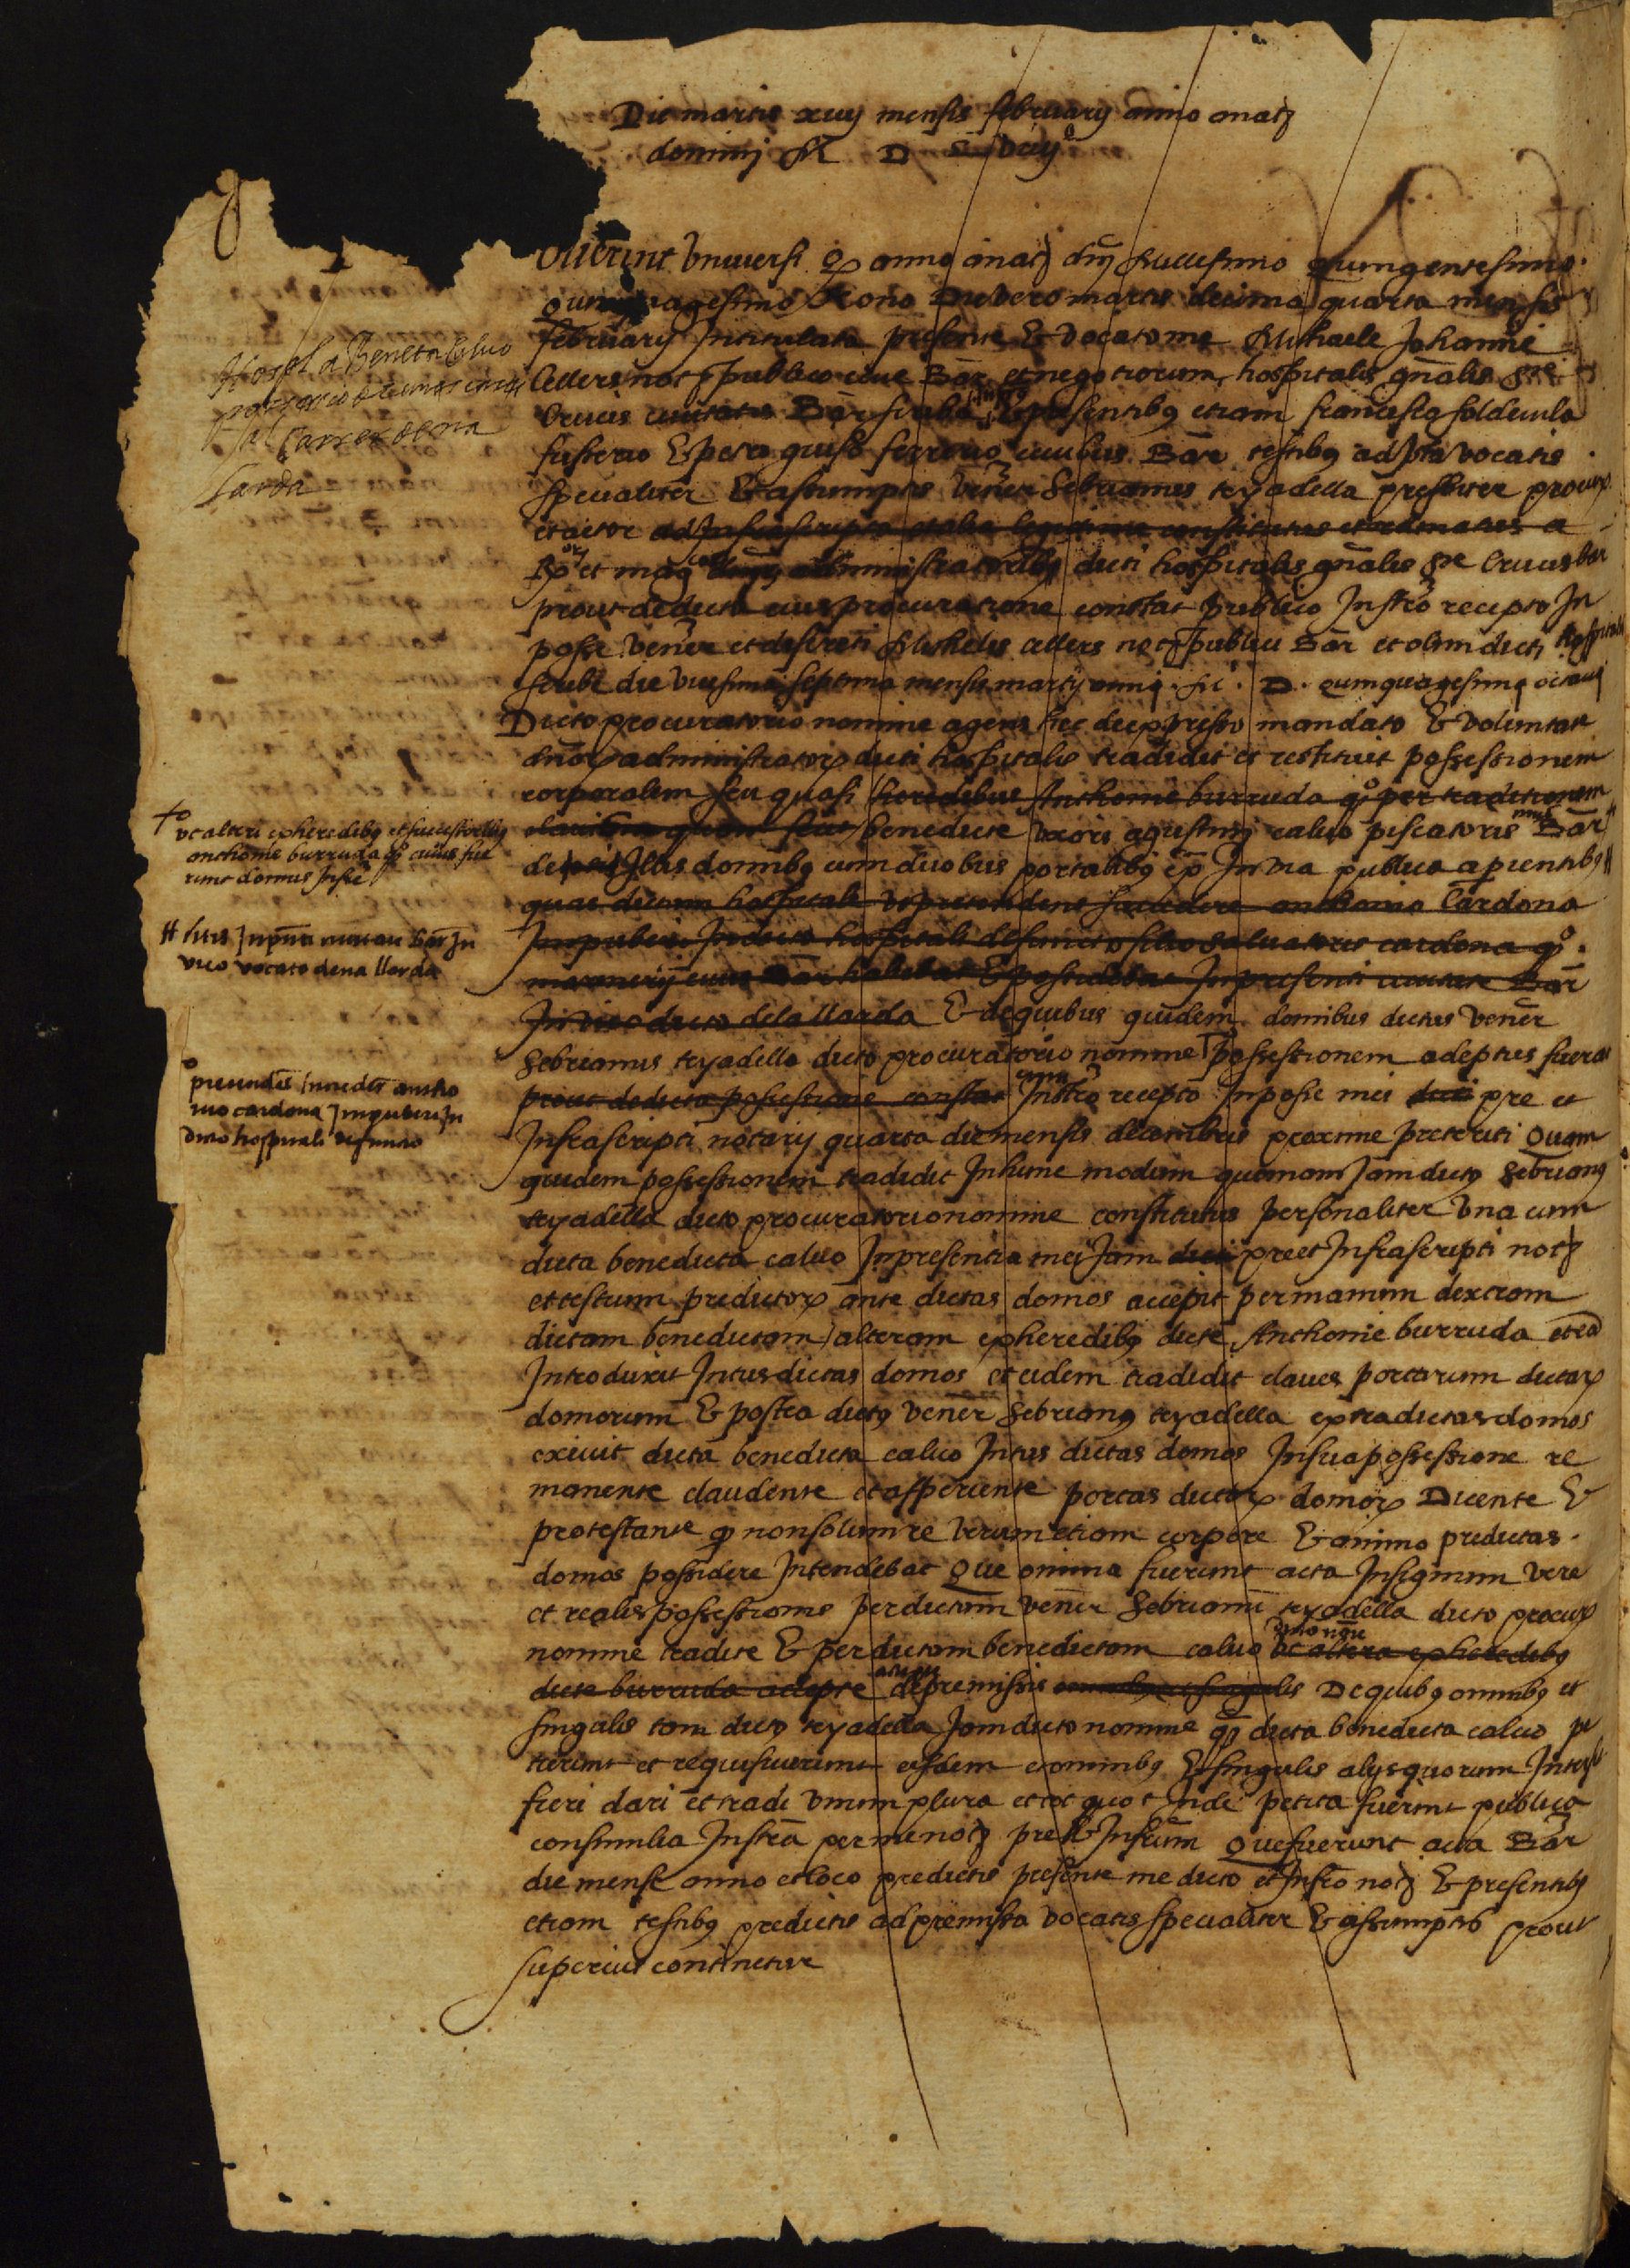 Die martis xiiij mensis februarij anno a natę
dominj M D L viiij°
Noverint universi q anno a natę dnj Millesimo quingentesimo
quinquagesimo Nono Die vero martis decima quarta mensis
februarij Intitulata presente & vocato me Michaele Johanne
Cellers notę publico cive Bar et negotiorum hospitalis gnalis ste
Crucis civitatis Bar scriba & presentibus etiam francisco soldevila
fusterio & petro guiso ferrerio civibus Bar testibus ad pta vocatis
specialiter & assumptis vener Sebrianus teyadella presbiter procur
et actor ad Infrascripta et alia legitime constitutus et ordinatus a
Rdo et mag dnis administratoribus dicti hospitalis gnalis ste Crucis bar
prout de dicta eius procuratione constat publico Instro recepto In
posse vener et discreti Michelis cellers notę publici Bar et olim dicti hospitalis
scribe die vicesima septima mensis martij anni M D quinquagesimi octavi
Dicto procuratorio nomine agens hec de expresso mandato & voluntate
dnor administrator dicti hospitalis tradidit et restituit possessionem
corporalem seu quasi heredibus Anthonie burruda qº per traditionem
clavium benedicte uxori agustini calvo piscatoris Bar
de Illis domibus cum duobus portalibus ex In via publica apientibus
quas dictum hospitale ut pretendens succedere anthonio Cardona
Impuberi In dicto hospitali defuncto filio salvatoris cardona qº
marinerij civis Bar habebat & possidebat In presenti civitate Bar
In vico dicto de la llarda & de quibus quidem domibus dictus vener
Sebrianus teyadella dicto procuratorio nomine possessionem adeptus fuerat
prout de dicta possessione constat cum Instro recepto In posse mei dicti pre et
Infrascripti notarij quarta die mensis decembris proxime preteriti Quam
quidem possessionem tradidit In hunc modum quoniam Jam dictus Sebrianus
teyadella dicto procuratorio nomine constitutus personaliter una cum
dicta benedicta calvo In presentia mei Jam dicti pre et Infrascripti notę
et testium predictor ante dictas domos accepit per manum dextram
dictam benedictam alteram ex heredibus dicte Anthonie burruda et ea
Introduxit Intus dictas domos et eidem tradidit claves portarum dictar
domorum & postea dictus vener Sebrianus teyadella extra dictas domos
exivit dicta benedicta calvo Intus dictas domos In sua possessione re
manente claudente et asperiente portas dictar domor Dicente &
protestante q non solum re verum etiam corpore & animo predictas
domos possidere Intendebat Que omnia fuerunt acta In signum vere
et realis possessionis per dictum vener Sebrianum teyadella dicto procur
nomine tradite & per dictam benedictam calvo dicto noie ut altera ex heredibus
dicte burruda adepte de premissis omnibus et singulis De quibus omnibus et
singulis tam dictus teyadella Jam dicto nomine qº dicta benedicta calvo pe
tierunt et requisiverunt eisdem et omnibus & singulis alijs quorum Intersit
fieri dari et tradi unum plura et tot quot Inde petita fuerint publica
consimilia Instra per me notę pre & Infrum Que fuerunt acta Bar
die mense anno et loco predictis presente me dicto et Infro notę & presentibus
etiam testibus predictis ad premissa vocatis specialiter & assumptis prout
superius continetur
a Beneta Calvo
carrer de na
Larda
ut alteri ex heredibus et successoribus
anthonie burruda qº cuius fue
runt domus Infre
sitis In pnti civitate Bar In
vico vocato de na llarda
pretendens succedere antho
nio cardona Impuberi In
dicto hospitali defuncto